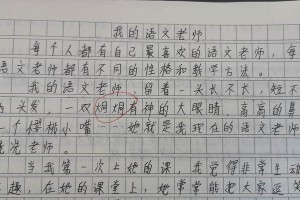 我的语文老师
每个人都有自己最喜欢的语文老师，每
语文老师都有不同的性格和教学方法。
我的语文老师，留着一头长不长，短不
的头发，一双炯炯有神的大眼睛，高高的鼻
一个樱桃小嘴——她就是我现在的语文老师
老师
当我第一次上她的课，我觉得非常生动
趣，在她的课堂上，她常常能把大家逗笑